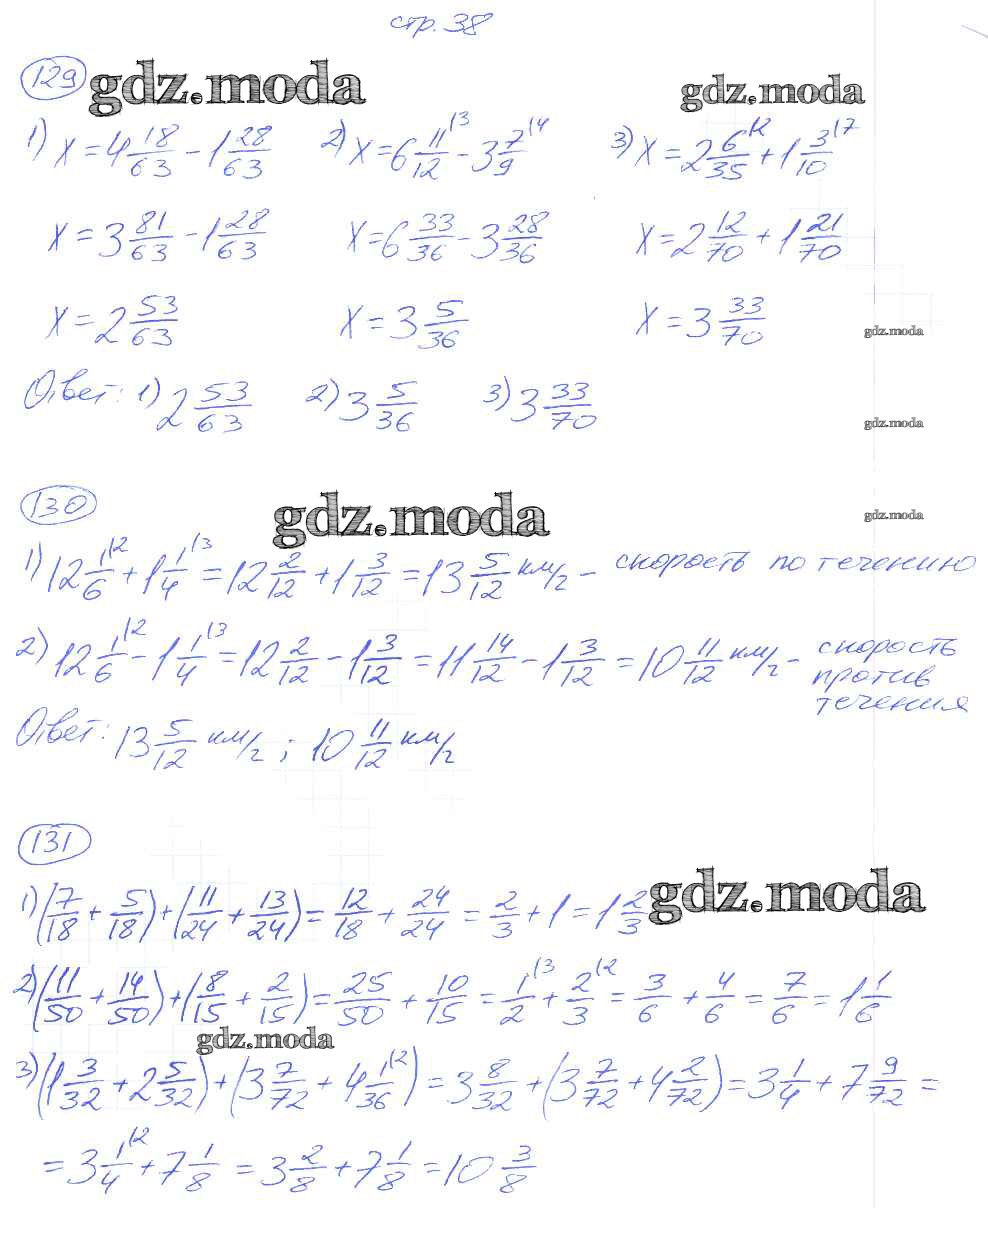 стр. 38
129 gdz.moda gdz.moda
1) x = 4 18/63 - 1 28/63 2) x = 6 11/12 \3 - 3 7/9 \4 3) x = 2 6/35 \2 + 1 3/10 \7
x = 3 81/63 - 1 28/63 x = 6 33/36 - 3 28/36 x = 2 12/70 + 1 21/70
x = 2 53/63 x = 3 5/36 x = 3 33/70 gdz.moda
Ответ: 1) 2 53/63 2) 3 5/36 3) 3 33/70 gdz.moda
130 gdz.moda gdz.moda
1) 12 1/6 \2 + 1 1/4 \3 = 12 2/12 + 1 3/12 = 13 5/12 км/г - скорость по течению
2) 12 1/6 \2 - 1 1/4 \3 = 12 2/12 - 1 3/12 = 11 14/12 - 1 3/12 = 10 11/12 км/г - скорость
против
течения
Ответ: 13 5/12 км/г ; 10 11/12 км/г
131
1) (7/18 + 5/18) + (11/24 + 13/24) = 12/18 + 24/24 = 2/3 + 1 = 1 2/3 gdz.moda
2) (11/50 + 14/50) + (8/15 + 2/15) = 25/50 + 10/15 = 1/2 \3 + 2/3 \2 = 3/6 + 4/6 = 7/6 = 1 1/6
gdz.moda
3) (1 3/32 + 2 5/32) + (3 7/72 + 4 1/36 \2) = 3 8/32 + (3 7/72 + 4 2/72) = 3 1/4 + 7 9/72 =
= 3 1/4 \2 + 7 1/8 = 3 2/8 + 7 1/8 = 10 3/8